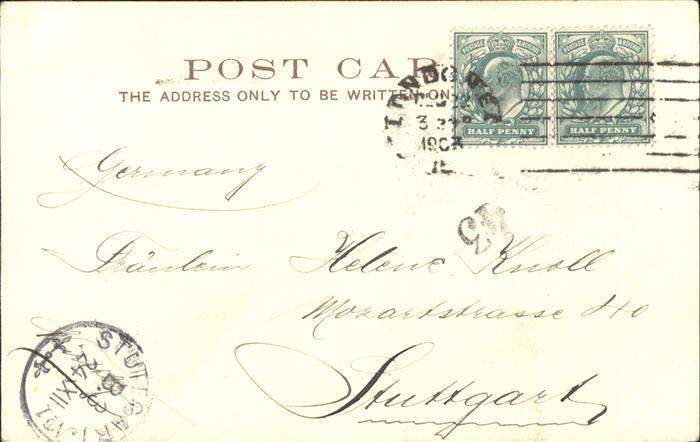 POST CAR
THE ADDRESS ONLY TO BE WRITTEN ON
POSTAGE REVENUE
HALF PENNY
POSTAGE REVENUE
HALF PENNY
LONDON
1903
Germany
Fräulein Helene Knoll
Mozartstrasse
Stuttgart
STUTTGART
XII